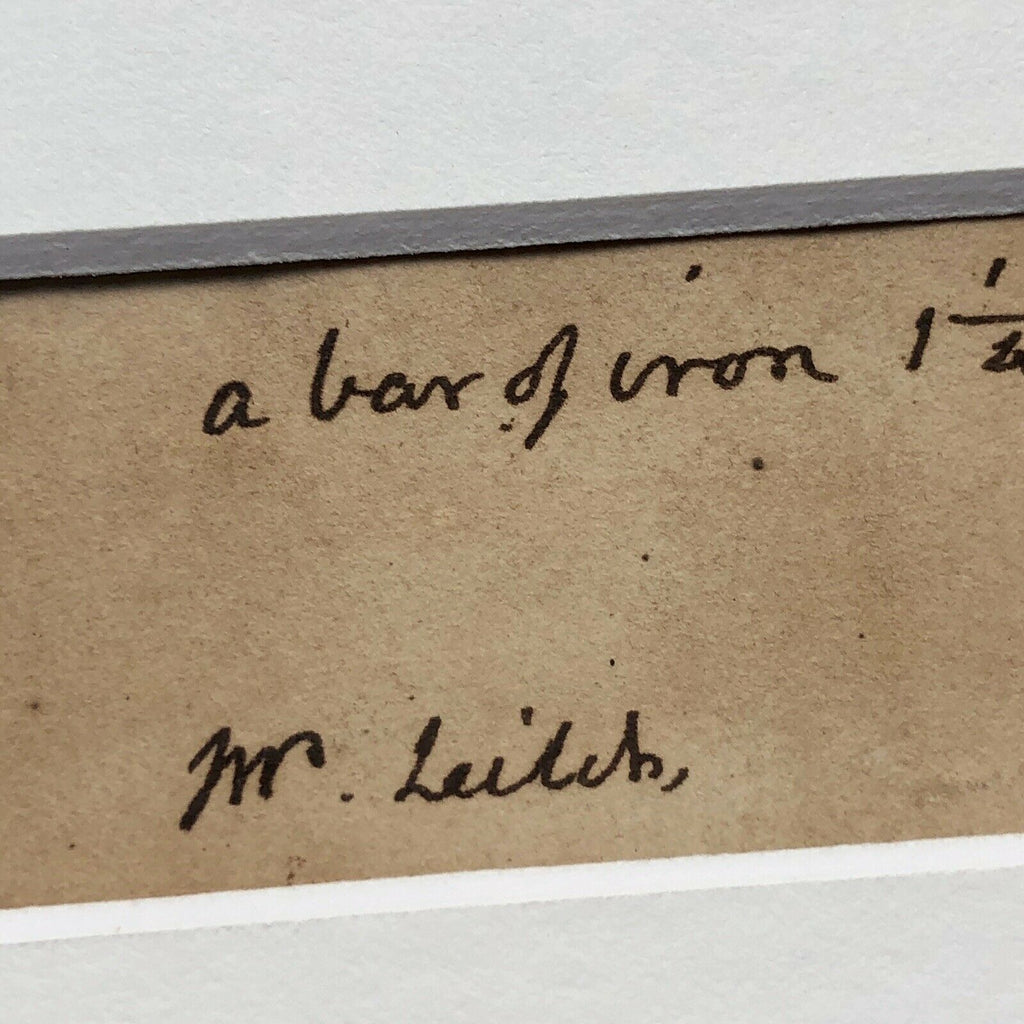 a bar of iron 1 1/2
Mr. Leitch,